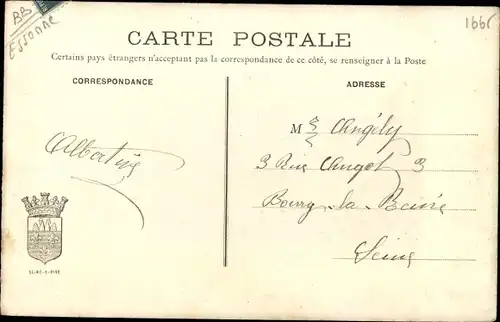 BB
Essonne
1666
CARTE POSTALE
Certains pays étrangers n'acceptant pas la correspondance de ce côté, se renseigner à la Poste
CORRESPONDANCE
ADRESSE
Albertine
M Angély
3 Rue Angot 3
Bourg-la-Reine
Seine